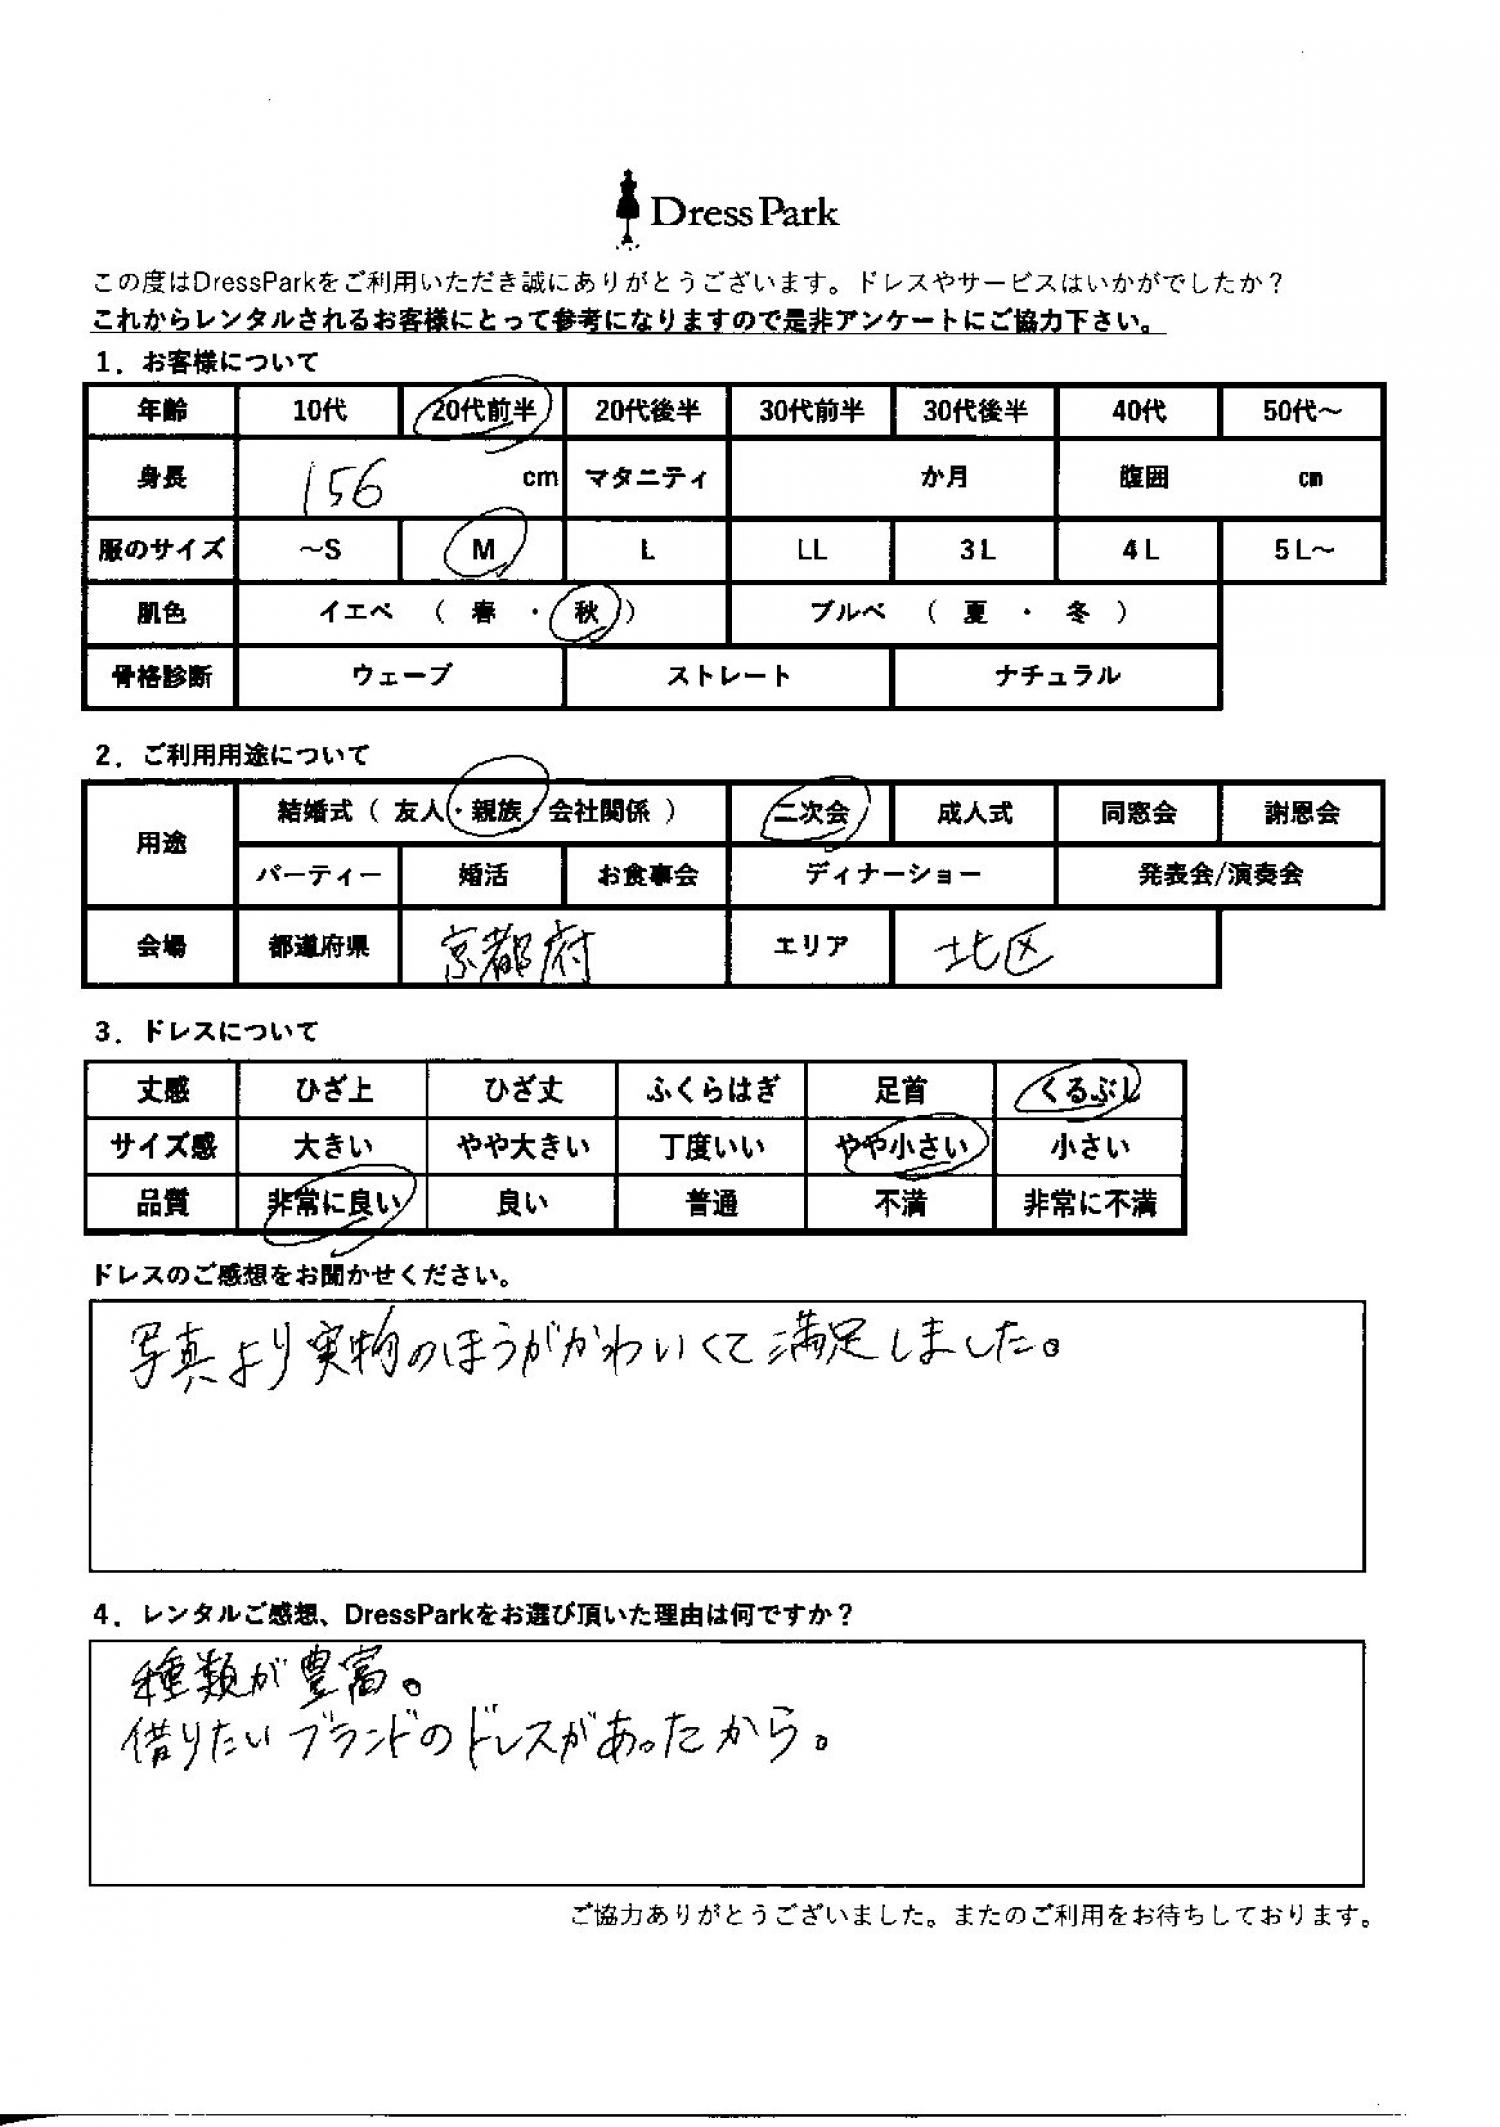 DressPark
この度はDressParkをご利用いただき誠にありがとうございます。ドレスやサービスはいかがでしたか？
これからレンタルされるお客様にとって参考になりますので是非アンケートにご協力下さい。
1．お客様について
年齢 10代 20代前半 20代後半 30代前半 30代後半 40代 50代～
身長 156 cm マタニティ か月 腹囲 cm
服のサイズ ～S M L LL 3L 4L 5L～
肌色 イエベ （ 春 ・ 秋 ） ブルベ （ 夏 ・ 冬 ）
骨格診断 ウェーブ ストレート ナチュラル
2．ご利用用途について
用途 結婚式（ 友人・親族・会社関係 ） 二次会 成人式 同窓会 謝恩会
パーティー 婚活 お食事会 ディナーショー 発表会/演奏会
会場 都道府県 京都府 エリア 北区
3．ドレスについて
丈感 ひざ上 ひざ丈 ふくらはぎ 足首 くるぶし
サイズ感 大きい やや大きい 丁度いい やや小さい 小さい
品質 非常に良い 良い 普通 不満 非常に不満
ドレスのご感想をお聞かせください。
写真より実物のほうがかわいくて満足しました。
4．レンタルご感想、DressParkをお選び頂いた理由は何ですか？
種類が豊富。
借りたいブランドのドレスがあったから。
ご協力ありがとうございました。またのご利用をお待ちしております。